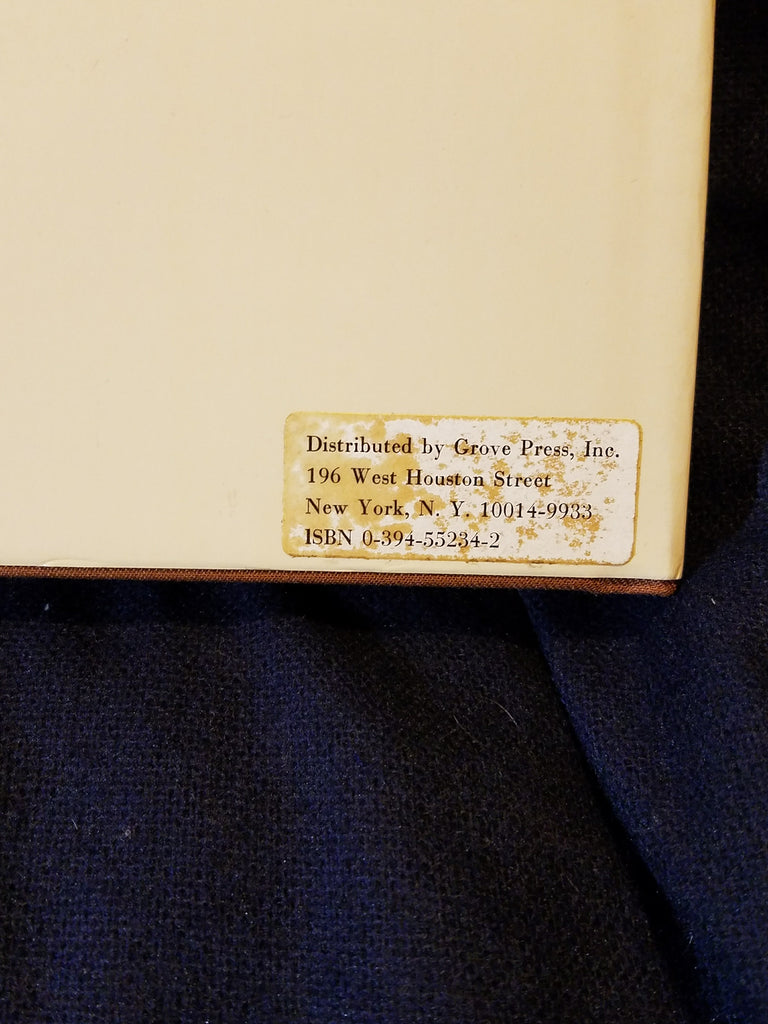 Distributed by Grove Press, Inc.
196 West Houston Street
New York, N. Y. 10014-9933
ISBN 0-394-55234-2